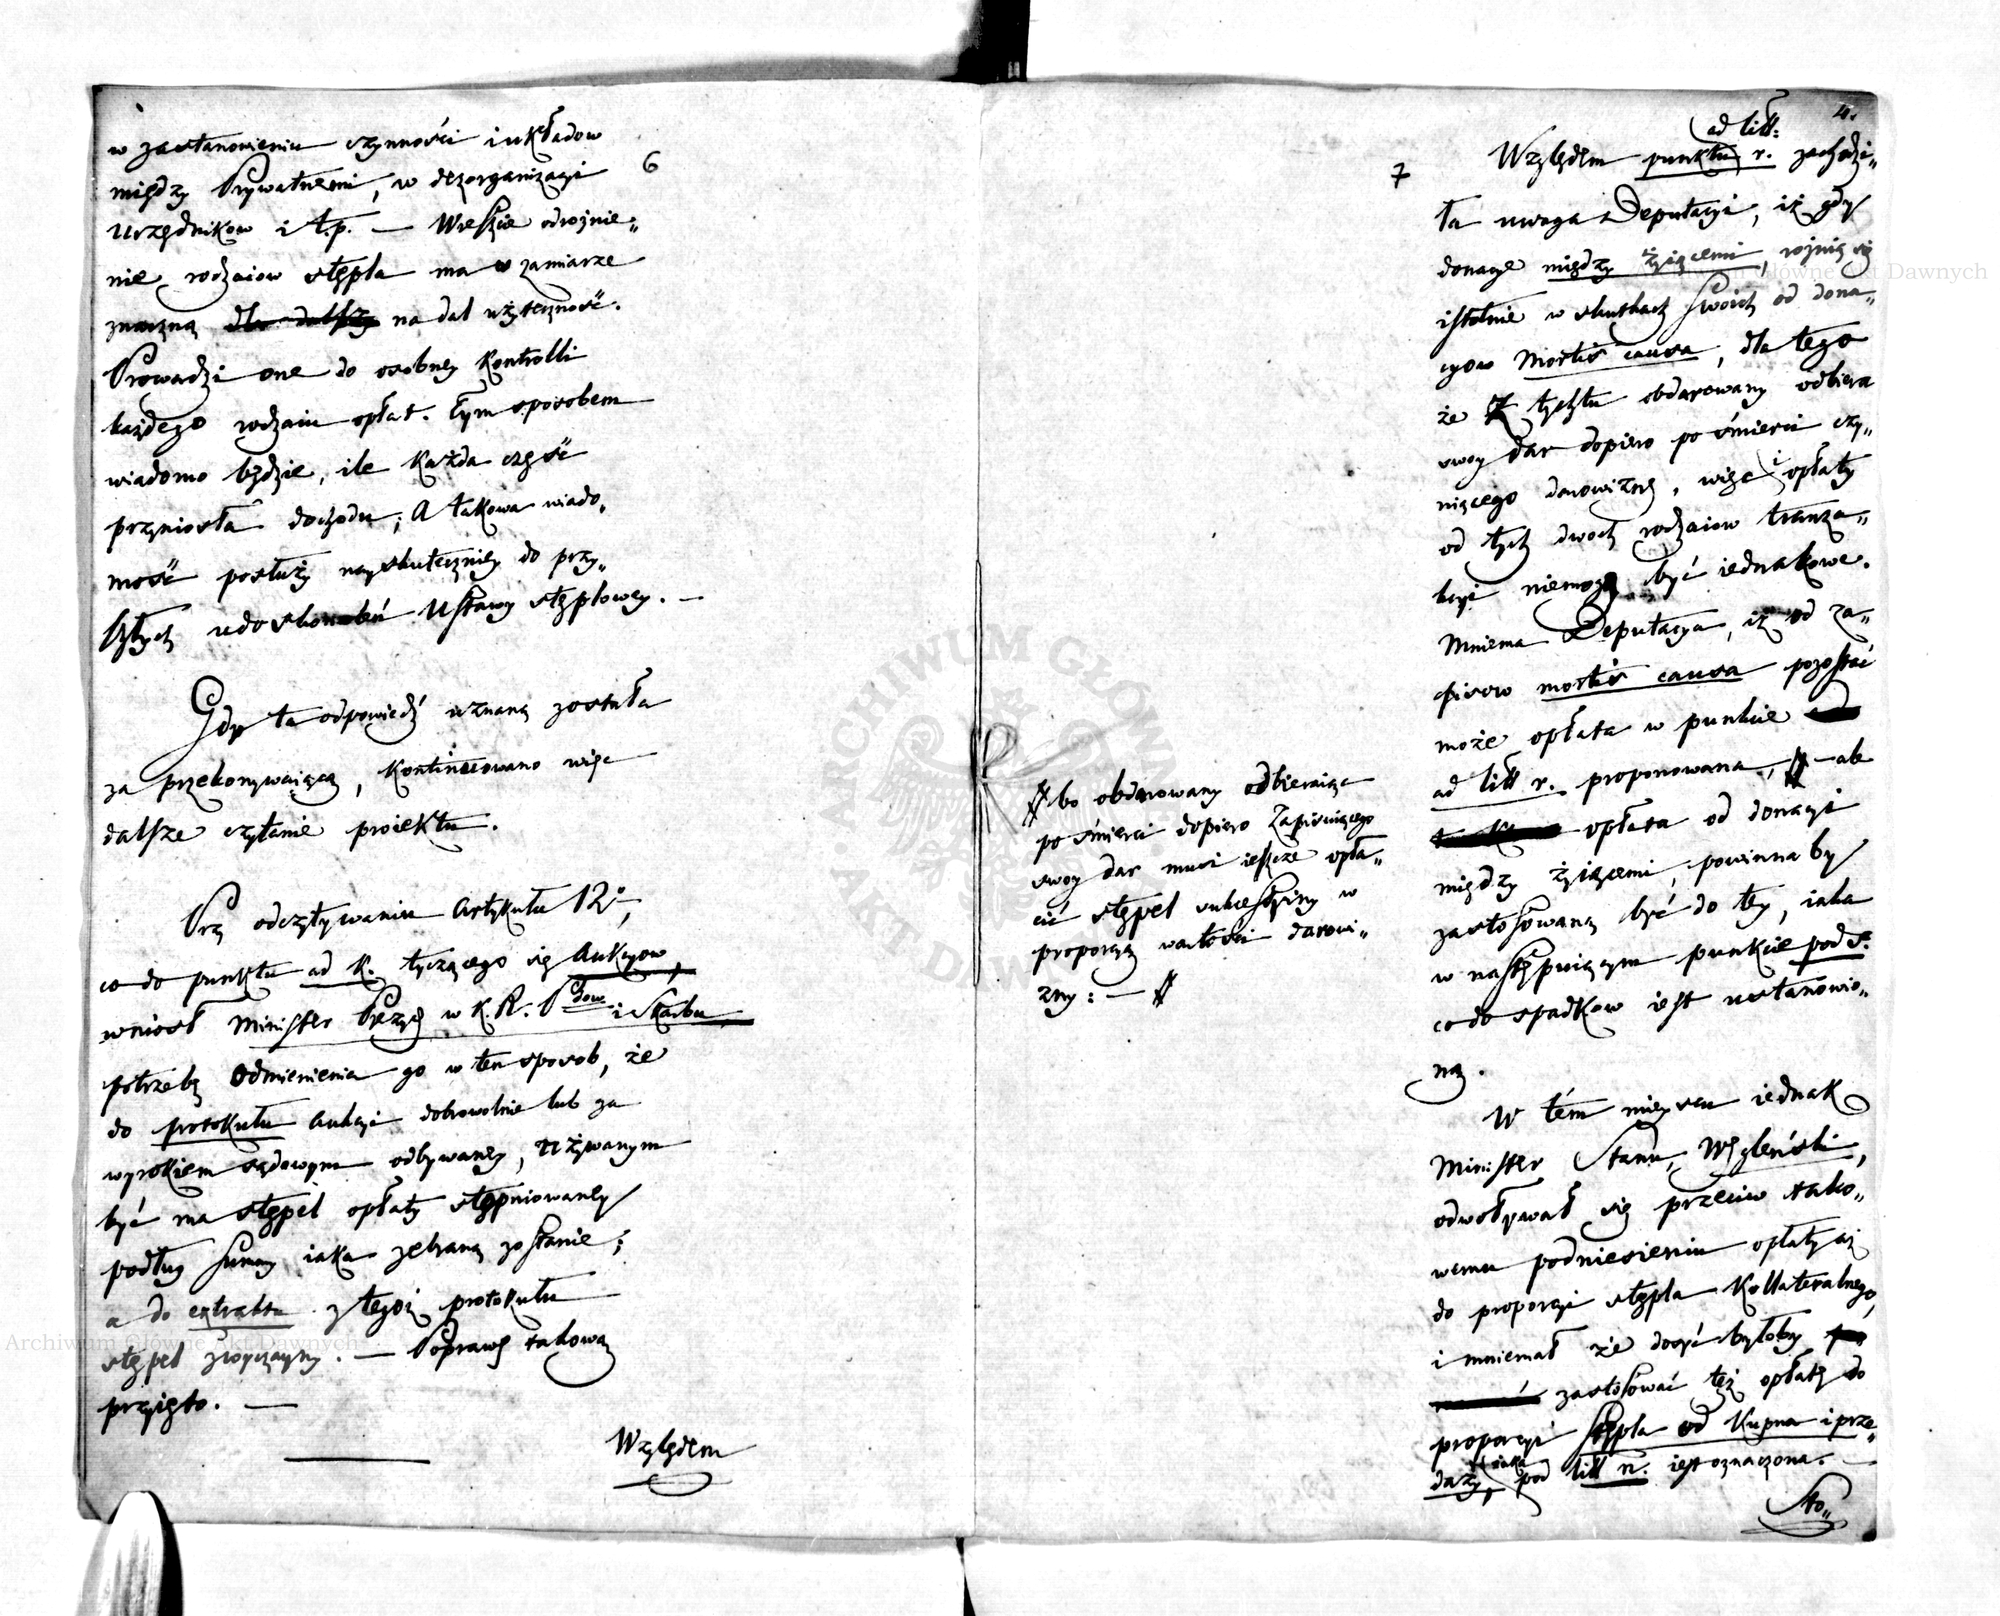 w zastanowieniu czynności i układow
między Prywatnemi, w dezorganizacyi
Urzędnikow i t.p. — Wreszcie odrożnie„
nie rodzaiow stępla ma w zamiarze
znaczną na dal użyteczność.
Prowadzi one do osobney Kontrolli
każdego rodzaiu opłat. Tym sposobem
wiadomo będzie, ile Każda część
przyniosła dochodu; A takowa wiado„
mość posłuży nayskuteczniey do przy„
szłych udoskonaleń Ustawy stęplowey. —
6
Gdy ta odpowiedź uznaną została
za przekonywaiącą, Kontinuowano więc
dalsze czytanie proiektu.
Przy odczytywaniu Artykułu 12°,
co do punktu ad k. tyczącego się Aukcyow,
wniosł Minister Prezyd w K. R. Pdow i Skarbu
potrzebę Odmienienia go w ten sposob, że
do protokułu Aukcyi dobrowolnie lub za
wyrokiem sądowym odbywaney, używanym
być ma stępel opłaty stępniowaney
podług Summy iaka zebraną zostanie;
a do extraktu z tegoż protokułu
stępel zwyczayny. — Poprawę takową
przyięto. —
Względem
4.
7
ad litt:
Względem punktu r. zachodzi„
ła uwaga Deputacyi, iż gdy
donacye między żyiącemi, rożnią się
istotnie w skutkach swoich od dona„
cyow mortis causa, dla tego
że Z tychtu obdarowany odbiera
swoy dar dopiero po śmierci czy„
niącego darowiznę, więc i opłaty
od tych dwoch rodzaiow tranza„
kcyi niemogą być iednakowe.
Mniema Deputacya, iż od za„
pisow mortis causa pozostać
może opłata w punkcie
ad litt r. proponowana, # — ale
opłata od donacyi
między żyiącemi, powinna by
zastosowaną być do tey, iaka
w następuiącym punkcie pod s.
co do spadkow iest ustanowio„
ną.
# bo obdarowany odbieraiąc
po śmierci dopiero Zapisuiącego
swoy dar musi ieszcze opła„
cić stępel sukcessyiny w
proporcyą wartości darowi„
zny: — #
W tém mieyscu iednak
Minister Stanu, Węgleński,
odwoływał się przeciw tako„
wemu podniesieniu opłaty aż
do proporcyi stępla Kollateralnego,
i mniemał że dosyć byłoby
zastosować też opłatę do
proporcyi stępla od Kupna i prze„
daży, iaka pod litt n. iest oznaczona. —
Sto„